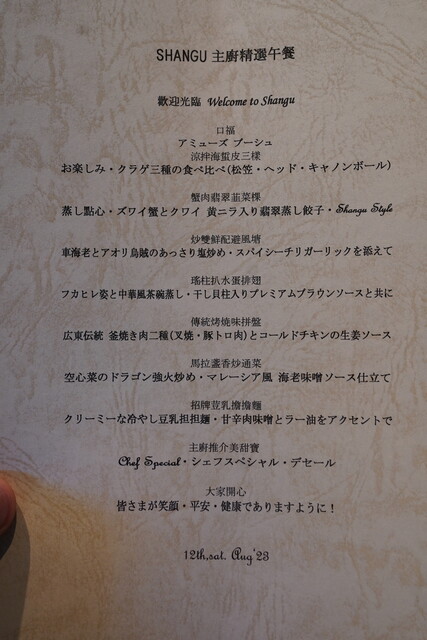 SHANGU 主廚精選午餐
歡迎光臨 Welcome to Shangu
口福
アミューズ ブーシュ
涼拌海蜇皮三樣
お楽しみ・クラゲ三種の食べ比べ(松笠・ヘッド・キャノンボール)
蟹肉翡翠韮菜粿
蒸し點心・ズワイ蟹とクワイ 黄ニラ入り翡翠蒸し餃子・Shangu Style
炒雙鮮配避風塘
車海老とアオリ烏賊のあっさり塩炒め・スパイシーチリガーリックを添えて
瑤柱扒水蛋排翅
フカヒレ姿と中華風茶碗蒸し・干し貝柱入りプレミアムブラウンソースと共に
傳統烤燒味拼盤
広東伝統 釜焼き肉二種(叉焼・豚トロ肉)とコールドチキンの生姜ソース
馬拉盞香炒通菜
空心菜のドラゴン強火炒め・マレーシア風 海老味噌ソース仕立て
招牌荳乳擔擔麵
クリーミーな冷やし豆乳担担麺・甘辛肉味噌とラー油をアクセントで
主廚推介美甜寶
Chef Special・シェフスペシャル・デセール
大家開心
皆さまが笑顔・平安・健康でありますように!
12th,sat. Aug'23